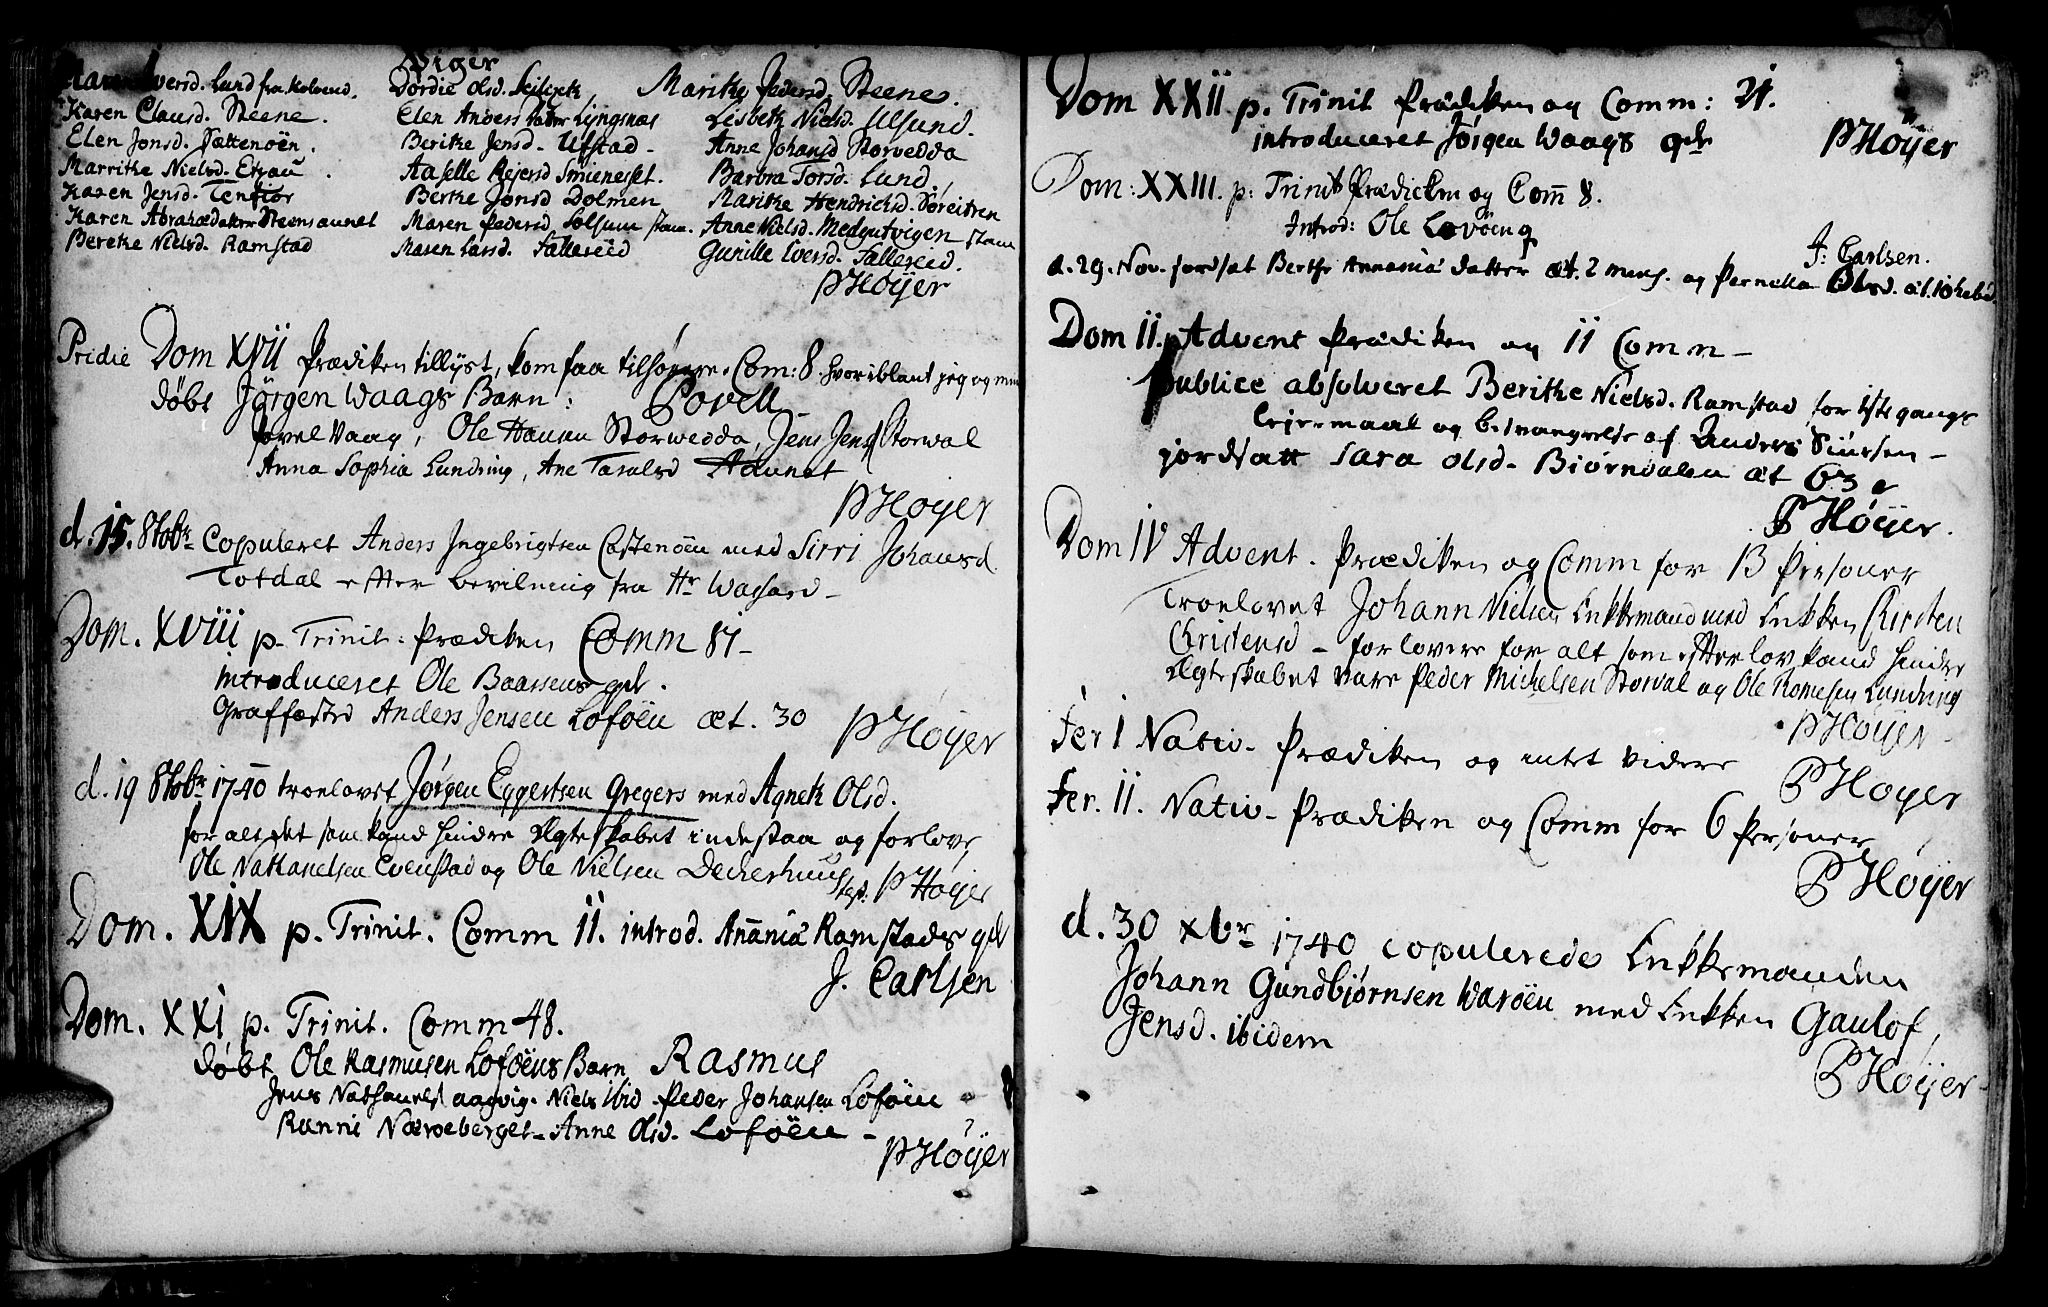 Piger
Maren Iversd. Lund fra Kolvered.
Karen Clausd. Steene.
Elen Jonsd. Sættenöen.
Marritke Nielsd. Erzau.
Karen Jensd. Tenfior
Karen Abrahædatter Steensaunet
Beretke Nielsd. Ramstad
Dordie Olsd. Seilsetk
Elen Anders Datter Lyngsnæs
Beritke Jensd. Ufstad -
Aaselle Rejersd Smienesset.
Beritke Jonsd Dolmen
Maren Pedersd Solsem stam.
Maren Larsd. Sallereed
Maritke Pedersd. Steenes.
Lisbetk Nielsd. Ulsund.
Anne Johansd Storvedda
Barbra Torsd. Lund
Maritke Hendricksd. Söreitren
Anne Nielsd. Medgutvigen stam
Gunille Iversd. Sallereed.
P Höyer
Pridie Dom XVII Prædiken tillyst, kom faa tilhörere. Com: 8. hvoriblant jeg og min
döbt Jörgen Waags Barn: Povell -
Povel Vaag, Ole Hansen Storwedda, Jens Jensd Storval
Anna Sophia Lundring, Ane Taralsd Adunet
P Höyer
d. 15. 8tobr Copuleret Anders Ingebrigtsen Castenöen med Sirri Johansd.
Totdal efter bevilning fra Hr Wassard -
Dom. XVIII p. Trinit: Prædiken Comm 81 -
introduceret Ole Baassens qdr.
Graffæsted Anders Jensen Loföen æt. 30
P Höyer
d. 19 8tobr 1740 troelovet Jörgen Eggertsen Gregers med Agnetk Olsd.
for alt det som kand hindre Ægteskabet indestaa og forlove,
Ole Nathanelsen Evenstad og Ole Nielsen Deckerhuus
test. P Höyer
Dom. XIX p. Trinit. Comm 11. introd. Ananiæ Ramstads qdr
J. Carlsen
Dom. XXI p. Trinit. Comm 48.
döbt Ole Rasmusen Loföens Barn Rasmus
Jens Nathanelsd aagvig. Niels ibid Peder Johansen Loföen
Runni Nærveberget - Anne Olsd. Loföen -
P Höyer
Dom XXII p. Trinit Prædiken og Comm: 21.
introduceret Jörgen Waags qdr
P Höyer
Dom: XXIII. p: Trinit Prædicken og Com 8.
Introd: Ole Lovöens q
J: Carlsen.
d. 29. Nov. jordsat Berthe Annaniæ datter æt. 2 mens. og Pernella Olsd. æt. 10 hebd.
Dom II. Advent Prædiken og 11 Comm -
Publice absolveret Beritke Nielsd. Ramstad for 1ste gangs
Leiermaal og besvangrelse af Anders Siursen -
jordsatt Sara Olsd - Biörndalen æt 63 -
P Höyer.
Dom IV Advent. Prædiken og Comm for 13 Personer
Troelovet Johann Nielsen Enkkemand med Enkken Kirsten
Christensd - forlovere for alt som efter lov kand hindre
Ægteskabet vare Peder Michelsen Storval og Ole Romesen Lundring
P Höyer -
Fer I Nativ - Prædiken og intet videre
P Höyer
Fer. II. Nativ - Prædiken og Comm for 6 Personer
P Höyer
d. 30 Xbr 1740 copulerede Enkkemanden
Johann Gundbjörnsen Waröen med Enkken Gauløf,
Jensd. ibidem
P Höyer -